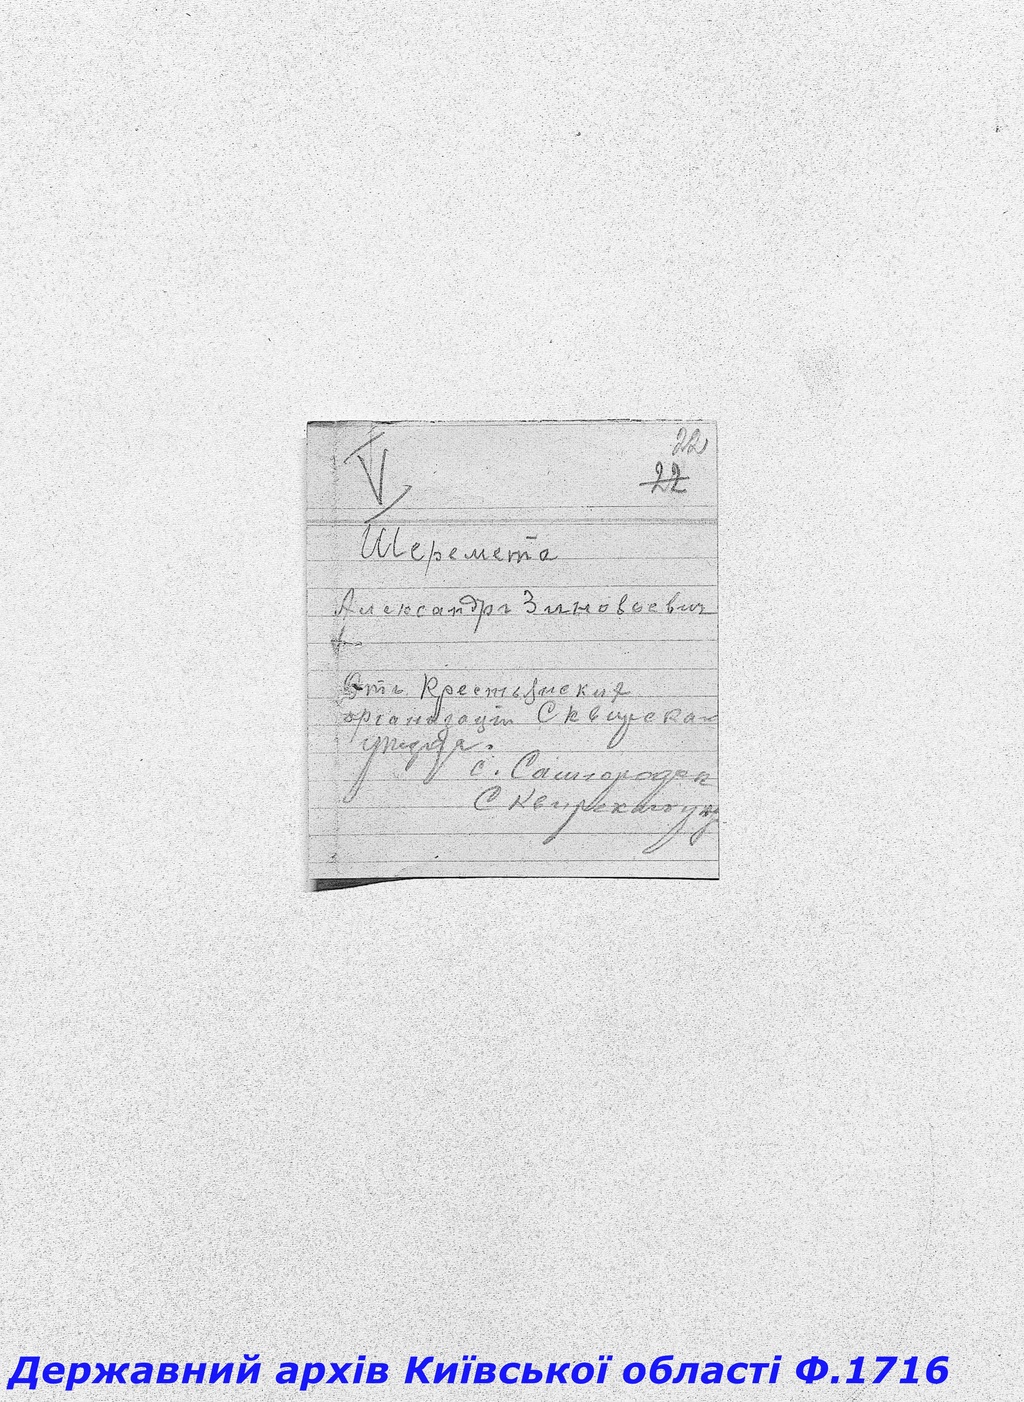 22
22
V
Шеремета
Александръ Зиновьевич
Отъ Крестьянских
организацiи Сквирскаго
уезда.
с. Самгородок
Сквирскаго у
Державний архів Київської області Ф.1716